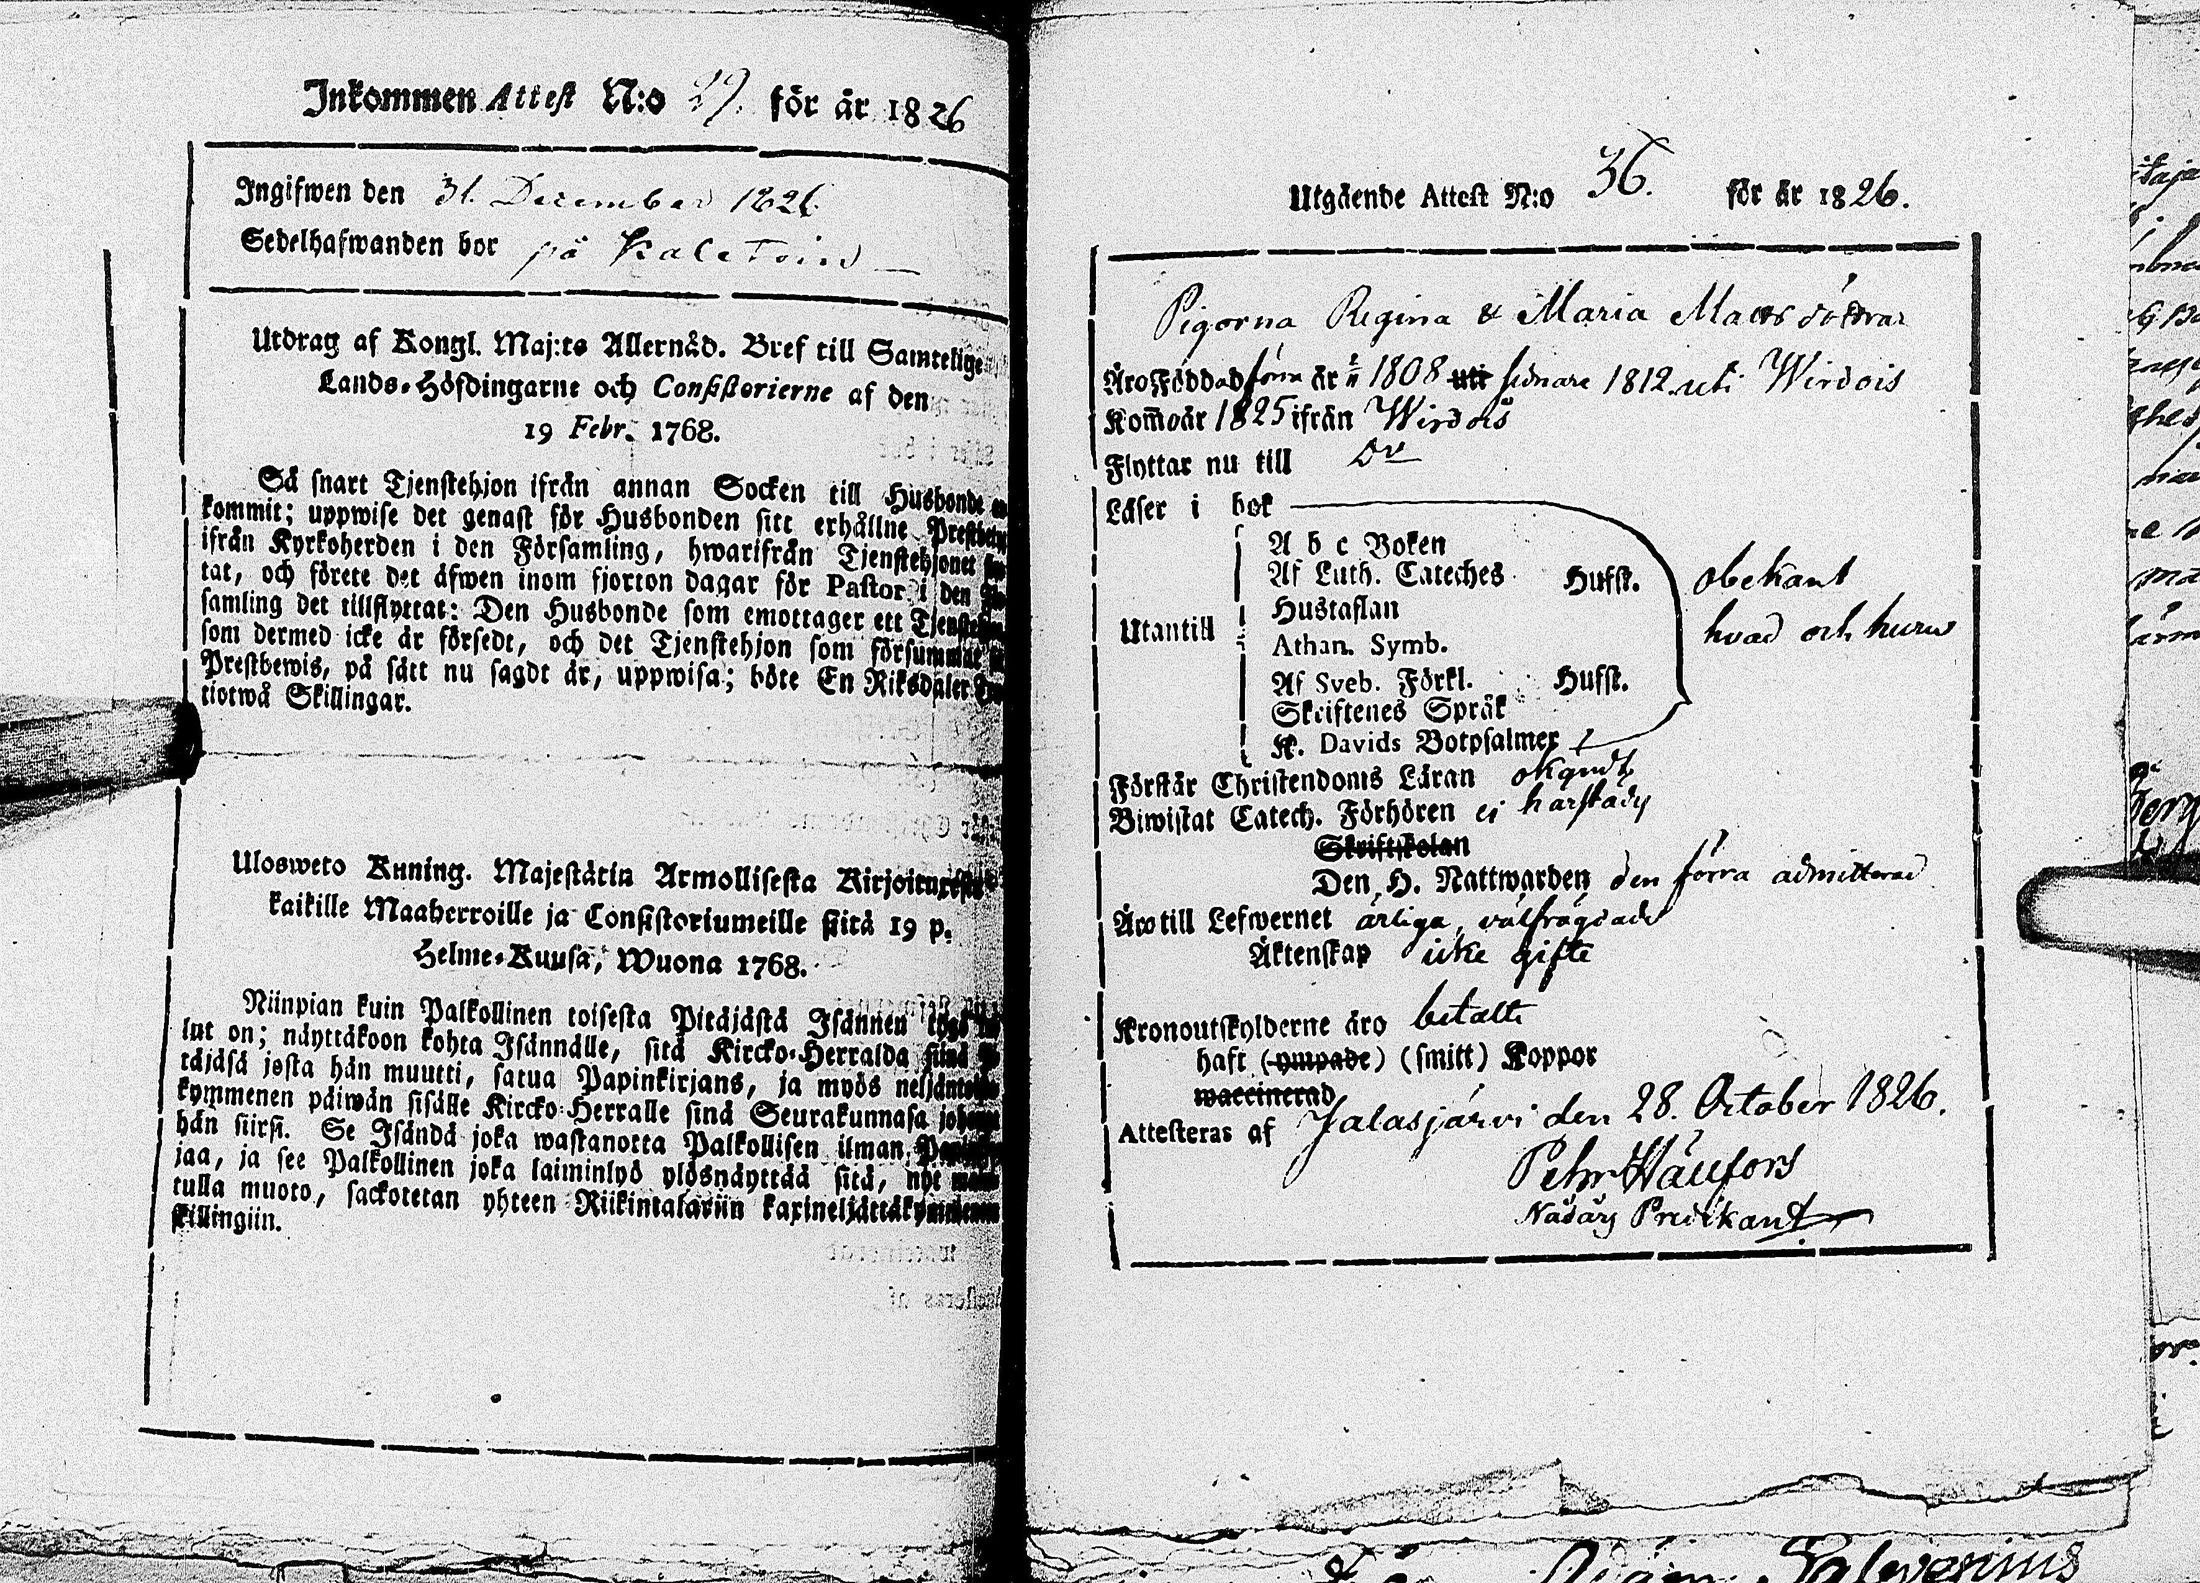 Inkommen Attest N:o 29. för år 1826
Ingifwen den 31. December 1826
Sedelhafwanden bor på
Utdrag af Kongl. Maj:ts Allernåd. Bref till Samtelige
Lands-Höfdingarne och Consistorierne af den
19 Febr. 1768.
Så snart Tjenstehjon ifrån annan Socken till Husbonde
kommit; uppwise det genast för Husbonden sitt erhållne
ifrån Kyrkoherden i den Församling, hwarifrån Tjenstehjonet
tat, och förete det äfwen inom fjorton dagar för Pastor i den
samling det tillflyttat: Den Husbonde som emottager ett
som dermed icke är försedt, och det Tjenstehjon som försummat
Prestbewis, på sätt nu sagdt är, uppwisa; böte En Riksdaler
tiotwå Skillingar.
Ulosweto Kuning. Majestätin Armollisesta Kirjoituxesta
kaikille Maaherroille ja Consistoriumeille siitä 19 p.
Helme-Kuusa, Wuona 1768.
Niinpian kuin Palkollinen toisesta Pitäjästä Isännen tygö
lut on; näyttäkoon kohta Isännälle, sitä Kircko-Herralda siinä
täjäsä josta hän muutti, satua Papinkirjans, ja myös
kymmenen päiwän sisälle Kircko-Herralle sinä Seurakunnasa
hän siirsi. Se Isändä joka wastanotta Palkollisen ilman
jaa, ja see Palkollinen joka laiminlyö ylösnäyttää sitä, nyt
tulla muoto, sackotetan yhteen Riikintalariin
skillingiin.
Utgående Attest N:o 36. för år 1826.
Pigorna Regina & Maria Mattsdöttrar
Äro Födda d förra år 1808 uti sednare 1812 uti Wirdois
Kom̅o år 1825 ifrån Wirdois
Flyttar nu till Do
Läser i bok
A b c Boken
Af Luth. Cateches Hufst. obekant
Hustaflan
Utantill hvad och huru
Athan. Symb.
Af Sveb. Förkl. Hufst.
Skriftenes Språk
K. Davids Botpsalmer
Förstår Christendoms Läran okändt
Biwistat Catech. Förhören ej härstädes
Skriftskolan
Den H. Nattwarden den förra admitterad
Äro till Lefwernet ärliga, välfrägdade
Äktenskap icke gifte
Kronoutskylderne äro betalte
haft (ympade) (smitt) Koppor
waccinerad
Attesteras af Jalasjärvi den 28. October 1826.
Pehr
Nådårs Predikant